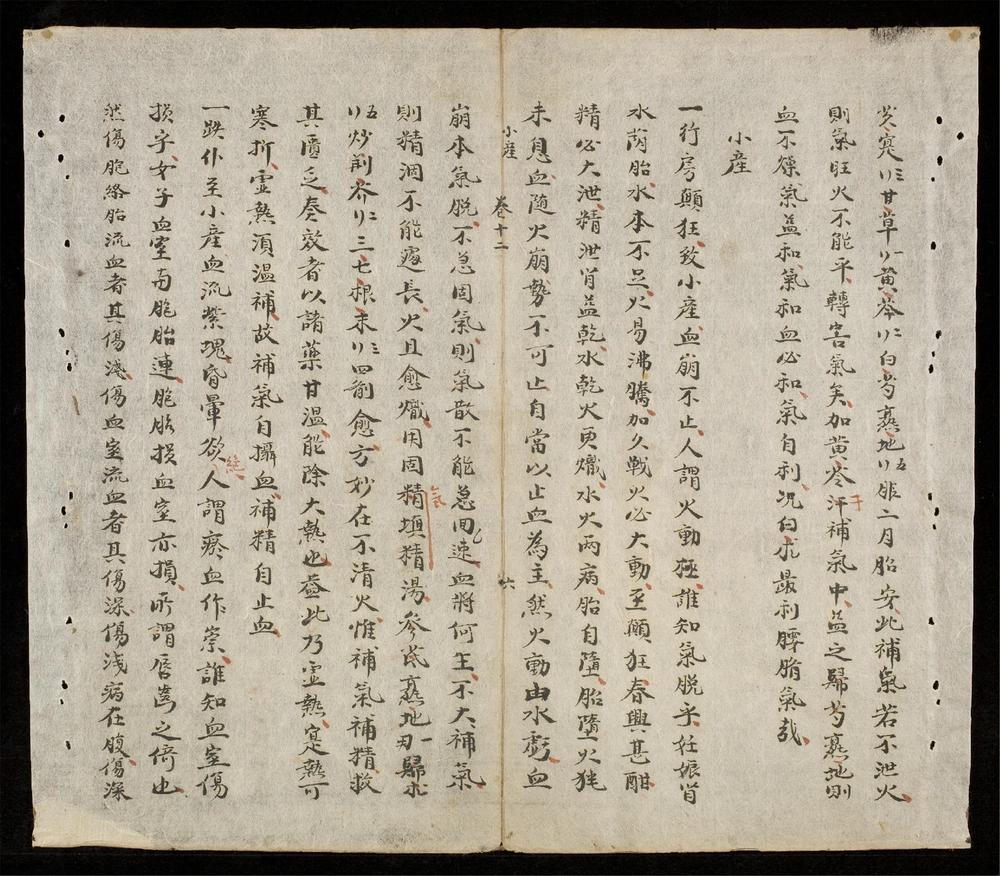 芡寔刂三甘草刂一黄芩刂二白芍熟地刂五服二月胎安此補氣若不泄火
則氣旺火不能平轉害氣矣加黄芩于補氣中益之歸芍熟地則
血不燥氣益和氣和血必和氣自利况白朮最利腰臍氣哉
小産
一行房顛狂致小産血崩不止人謂火動極誰知氣脱乎妊娠肾
水荫胎水本不足火易沸騰加久戰火必大動至顛狂春興甚酣
精必大泄精泄肾益乾水乾火更熾水火兩病胎自墮胎墮火
未息血隨火崩勢不可止自當以止血為主然火動由水虧血
小産 卷十二 六
崩本氣脱不急固氣則氣散不能急回速血將何生不大補氣
則精涸不能遽長火且愈熾用固氣精填精湯參芪熟地刃一歸朮
刂五炒荆芥刂二三七根末刂三四剤愈方妙在不清火惟補氣補精救
其匱乏奏效者以諸藥甘溫能除大熱也盖此乃虚熱寔熱可
寒折虚熱須溫補故補氣自攝血補精自止血
一跌仆至小産血流紫塊昏暈欲絶人謂瘀血作祟誰知血室傷
損乎女子血室与胞胎連胞胎損血室亦損所謂唇齒之倚也
然傷胞絡胎流血者其傷淺傷血室流血者其傷深傷淺病在腹傷深